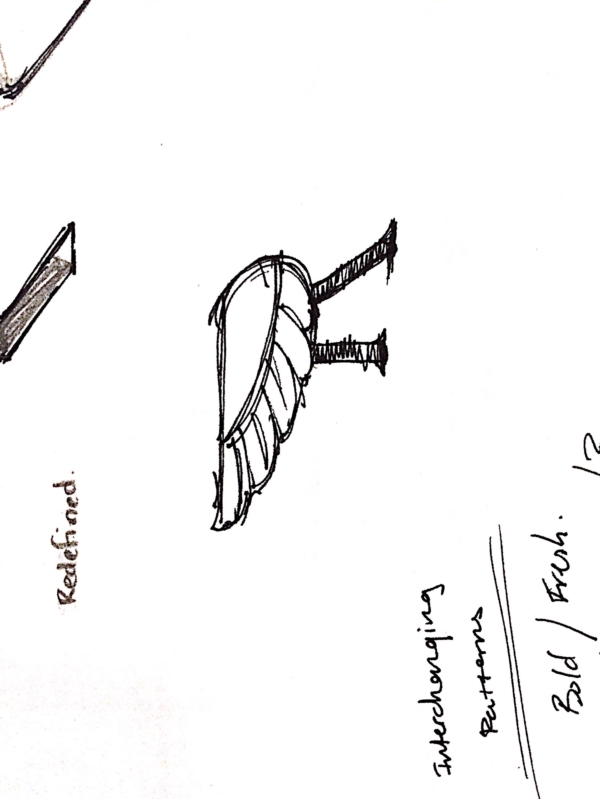 Redefined.
Interchanging
Patterns
Bold / Fresh.